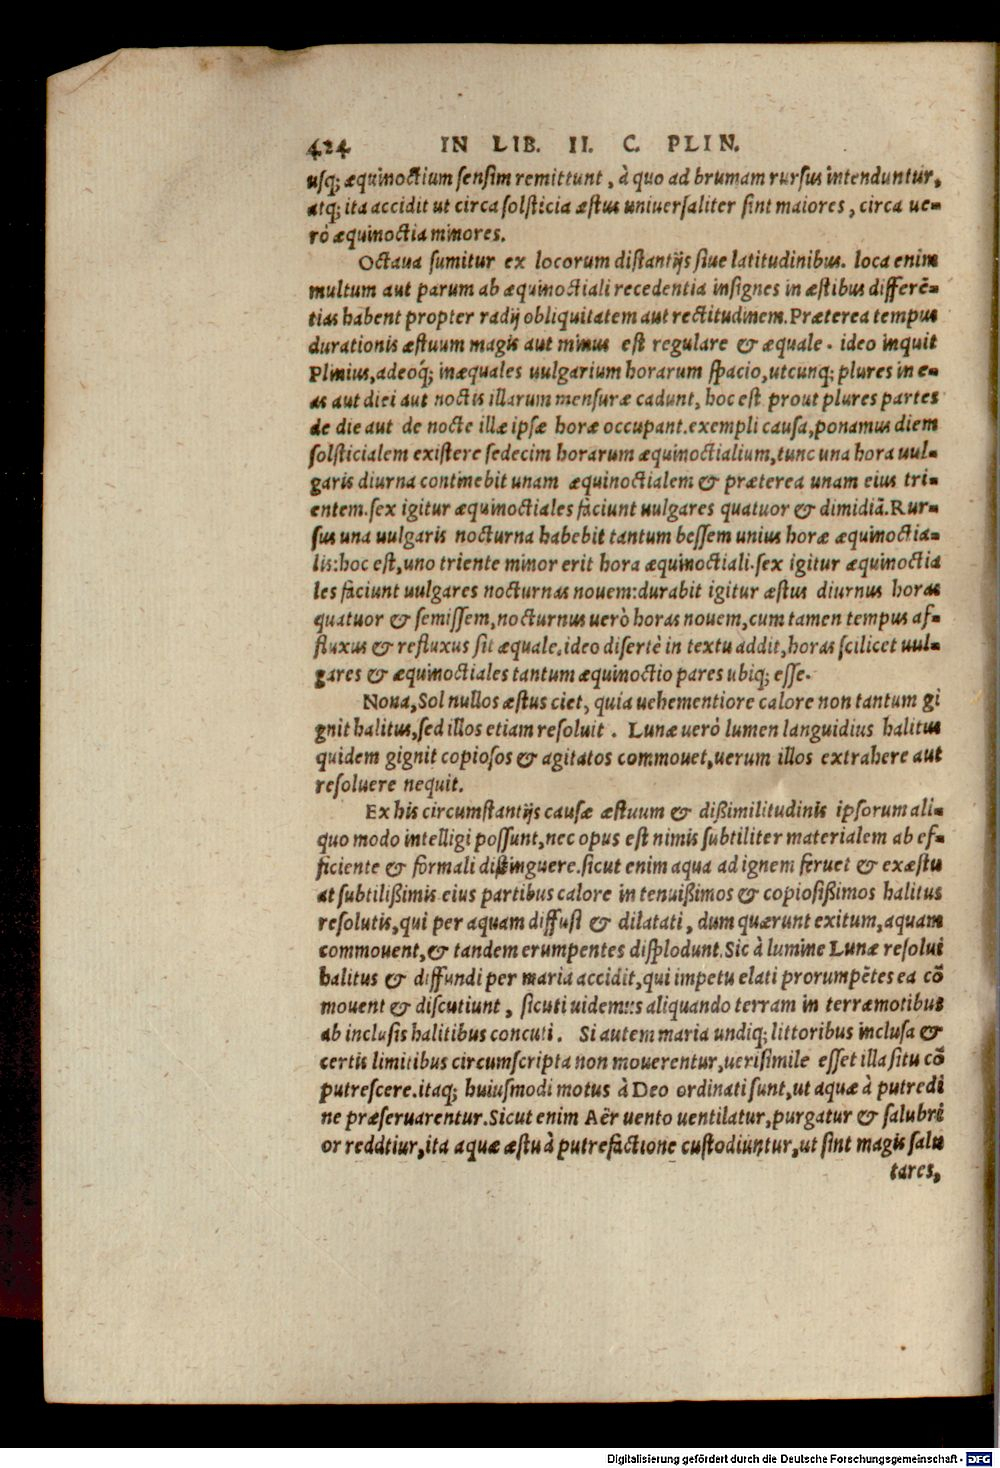 424 IN LIB. II. C. PLIN.
usq; æquinoctium sensim remittunt, à quo ad brumam rursus intenduntur,
atq; ita accidit ut circa solsticia æstus uniuersaliter sint maiores, circa ue-
rò æquinoctia minores.
Octaua sumitur ex locorum distantijs siue latitudinibus. loca enim
multum aut parum ab æquinoctiali recedentia insignes in æstibus differẽ-
tias habent propter radij obliquitatem aut rectitudinem. Præterea tempus
durationis æstuum magis aut minus est regulare & æquale. ideo inquit
Plinius, adeoq́; inæquales uulgarium horarum spacio, utcunq; plures in e-
as aut diei aut noctis illarum mensuræ cadunt, hoc est prout plures partes
de die aut de nocte illæ ipsæ horæ occupant. exempli causa, ponamus diem
solsticialem existere sedecim horarum æquinoctialium, tunc una hora uul-
garis diurna continebit unam æquinoctialem & præterea unam eius tri-
entem. sex igitur æquinoctiales faciunt uulgares quatuor & dimidiã. Rur-
sus una uulgaris nocturna habebit tantum bessem unius horæ æquinoctia-
lis: hoc est, uno triente minor erit hora æquinoctiali. sex igitur æquinoctia
les faciunt uulgares nocturnas nouem: durabit igitur æstus diurnus horas
quatuor & semissem, nocturnus uerò horas nouem, cum tamen tempus af-
fluxus & refluxus sit æquale. ideo disertè in textu addit, horas scilicet uul-
gares & æquinoctiales tantum æquinoctio pares ubiq; esse.
Nona, Sol nullos æstus ciet, quia uehementiore calore non tantum gi
gnit halitus, sed illos etiam resoluit. Lunæ uerò lumen languidius halitus
quidem gignit copiosos & agitatos commouet, uerum illos extrahere aut
resoluere nequit.
Ex his circumstantijs causæ æstuum & dißimilitudinis ipsorum ali-
quo modo intelligi possunt, nec opus est nimis subtiliter materialem ab ef-
ficiente & formali distinguere. sicut enim aqua ad ignem feruet & exæstu
at subtilißimis eius partibus calore in tenuißimos & copiosißimos halitus
resolutis, qui per aquam diffusi & dilatati, dum quærunt exitum, aquam
commouent, & tandem erumpentes displodunt. Sic à lumine Lunæ resolui
halitus & diffundi per maria accidit, qui impetu elati prorumpẽtes ea cõ
mouent & discutiunt, sicuti uidemus aliquando terram in terræmotibus
ab inclusis halitibus concuti. Si autem maria undiq; littoribus inclusa &
certis limitibus circumscripta non mouerentur, uerisimile esset illa situ cõ
putrescere. itaq; huiusmodi motus à Deo ordinati sunt, ut aquæ à putredi
ne præseruarentur. Sicut enim Aër uento uentilatur, purgatur & salubri
or reddtiur, ita aquæ æstu à putrefactione custodiuntur, ut sint magis salu
tares,
Digitalisierung gefördert durch die Deutsche Forschungsgemeinschaft - DFG